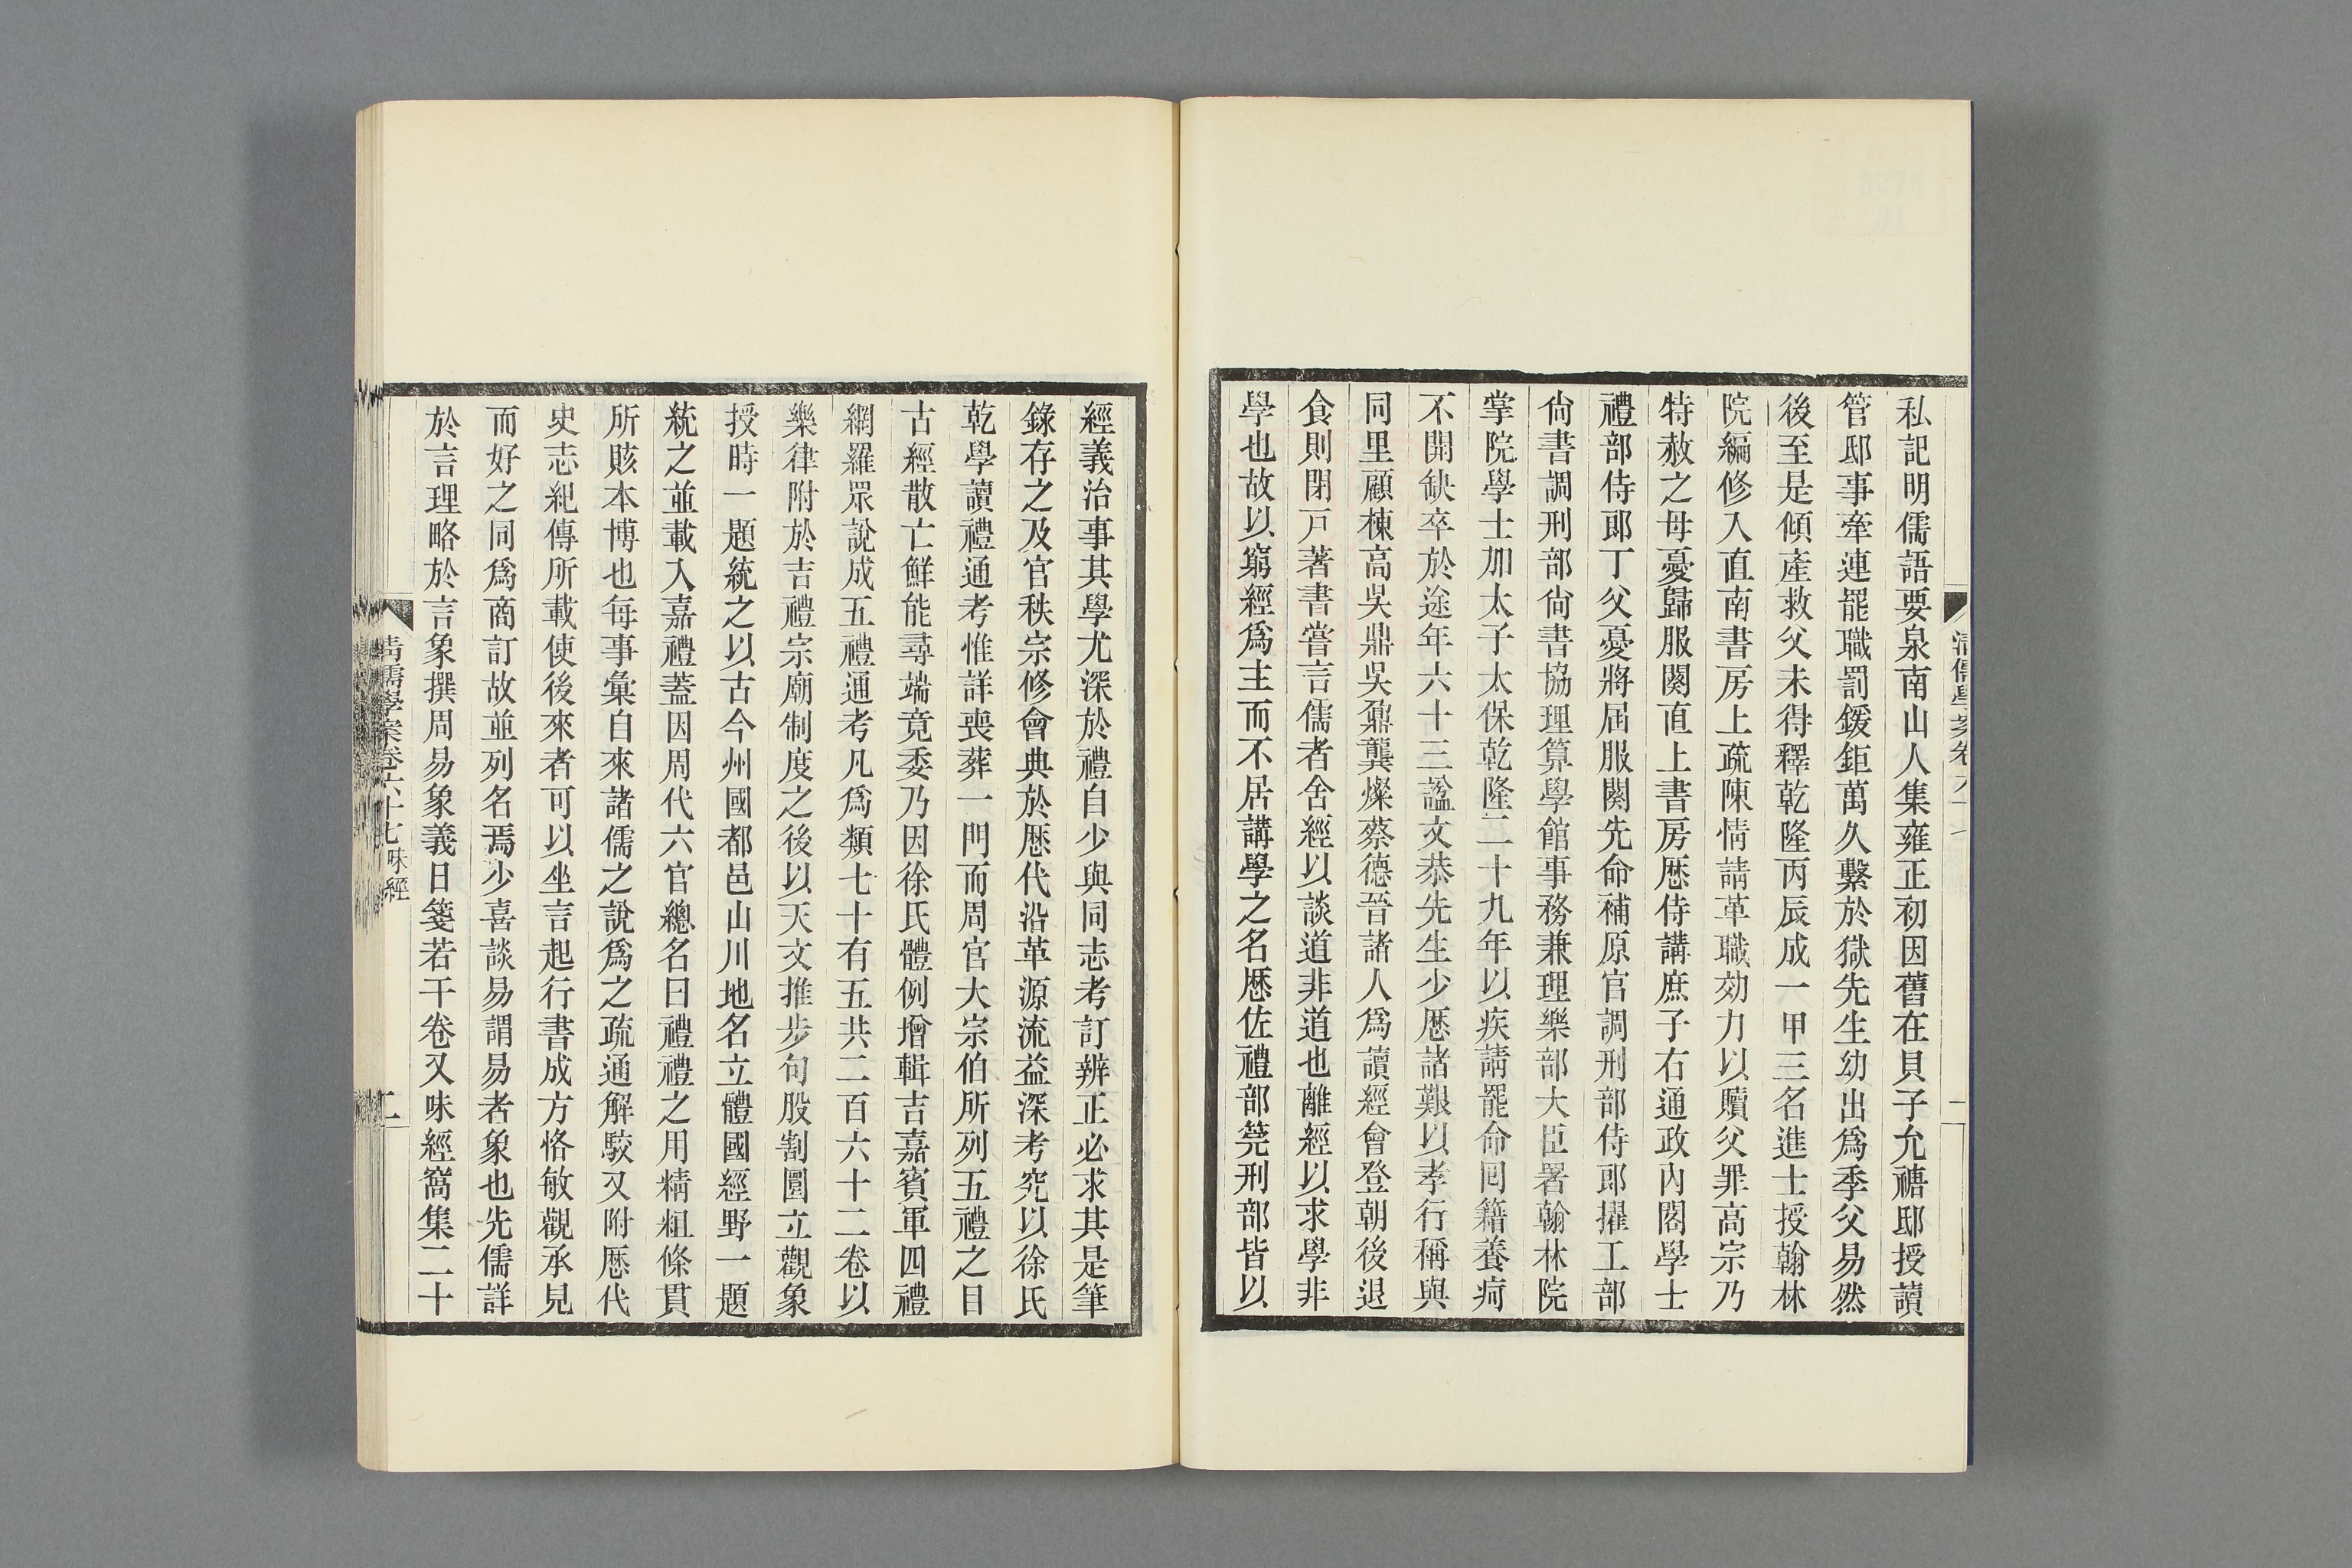 私記明儒語要泉南山人集雍正初因舊在貝子允禟邸授讀
管邸事牽連罷職罰鍰鉅萬久繫於獄先生幼出爲季父易然
後至是傾產救父未得釋乾隆丙辰成一甲三名進士授翰林
院編修入直南書房上疏陳情請革職効力以贖父罪高宗乃
特赦之母憂歸服闋直上書房歷侍講庶子右通政內閣學士
禮部侍郎丁父憂將屆服闋先命補原官調刑部侍郎擢工部
尚書調刑部尚書協理算學館事務兼理樂部大臣署翰林院
掌院學士加太子太保乾隆二十九年以疾請罷命囘籍養疴
不開缺卒於途年六十三諡文恭先生少歷諸艱以孝行稱與
同里顧棟高吳鼎吳鼐龔燦蔡德晉諸人爲讀經會登朝後退
食則閉戸著書嘗言儒者舍經以談道非道也離經以求學非
學也故以窮經爲主而不居講學之名歷佐禮部筦刑部皆以
經義治事其學尤深於禮自少與同志考訂辨正必求其是筆
錄存之及官秩宗修會典於歷代沿革源流益深考究以徐氏
乾學讀禮通考惟詳喪葬一門而周官大宗伯所列五禮之目
古經散亡鮮能尋端竟委乃因徐氏體例增輯吉嘉賓軍四禮
網羅眾說成五禮通考凡爲類七十有五共二百六十二卷以
樂律附於吉禮宗廟制度之後以天文推步句股割圜立觀象
授時一題統之以古今州國都邑山川地名立體國經野一題
統之並載入嘉禮蓋因周代六官總名曰禮禮之用精粗條貫
所賅本博也每事彙自來諸儒之說爲之疏通解駮又附歷代
史志紀傳所載使後來者可以坐言起行書成方恪敏觀承見
而好之同爲商訂故並列名焉少喜談易謂易者象也先儒詳
於言理略於言象撰周易象義日箋若干卷又味經窩集二十
清儒學案卷六十七 味經
二